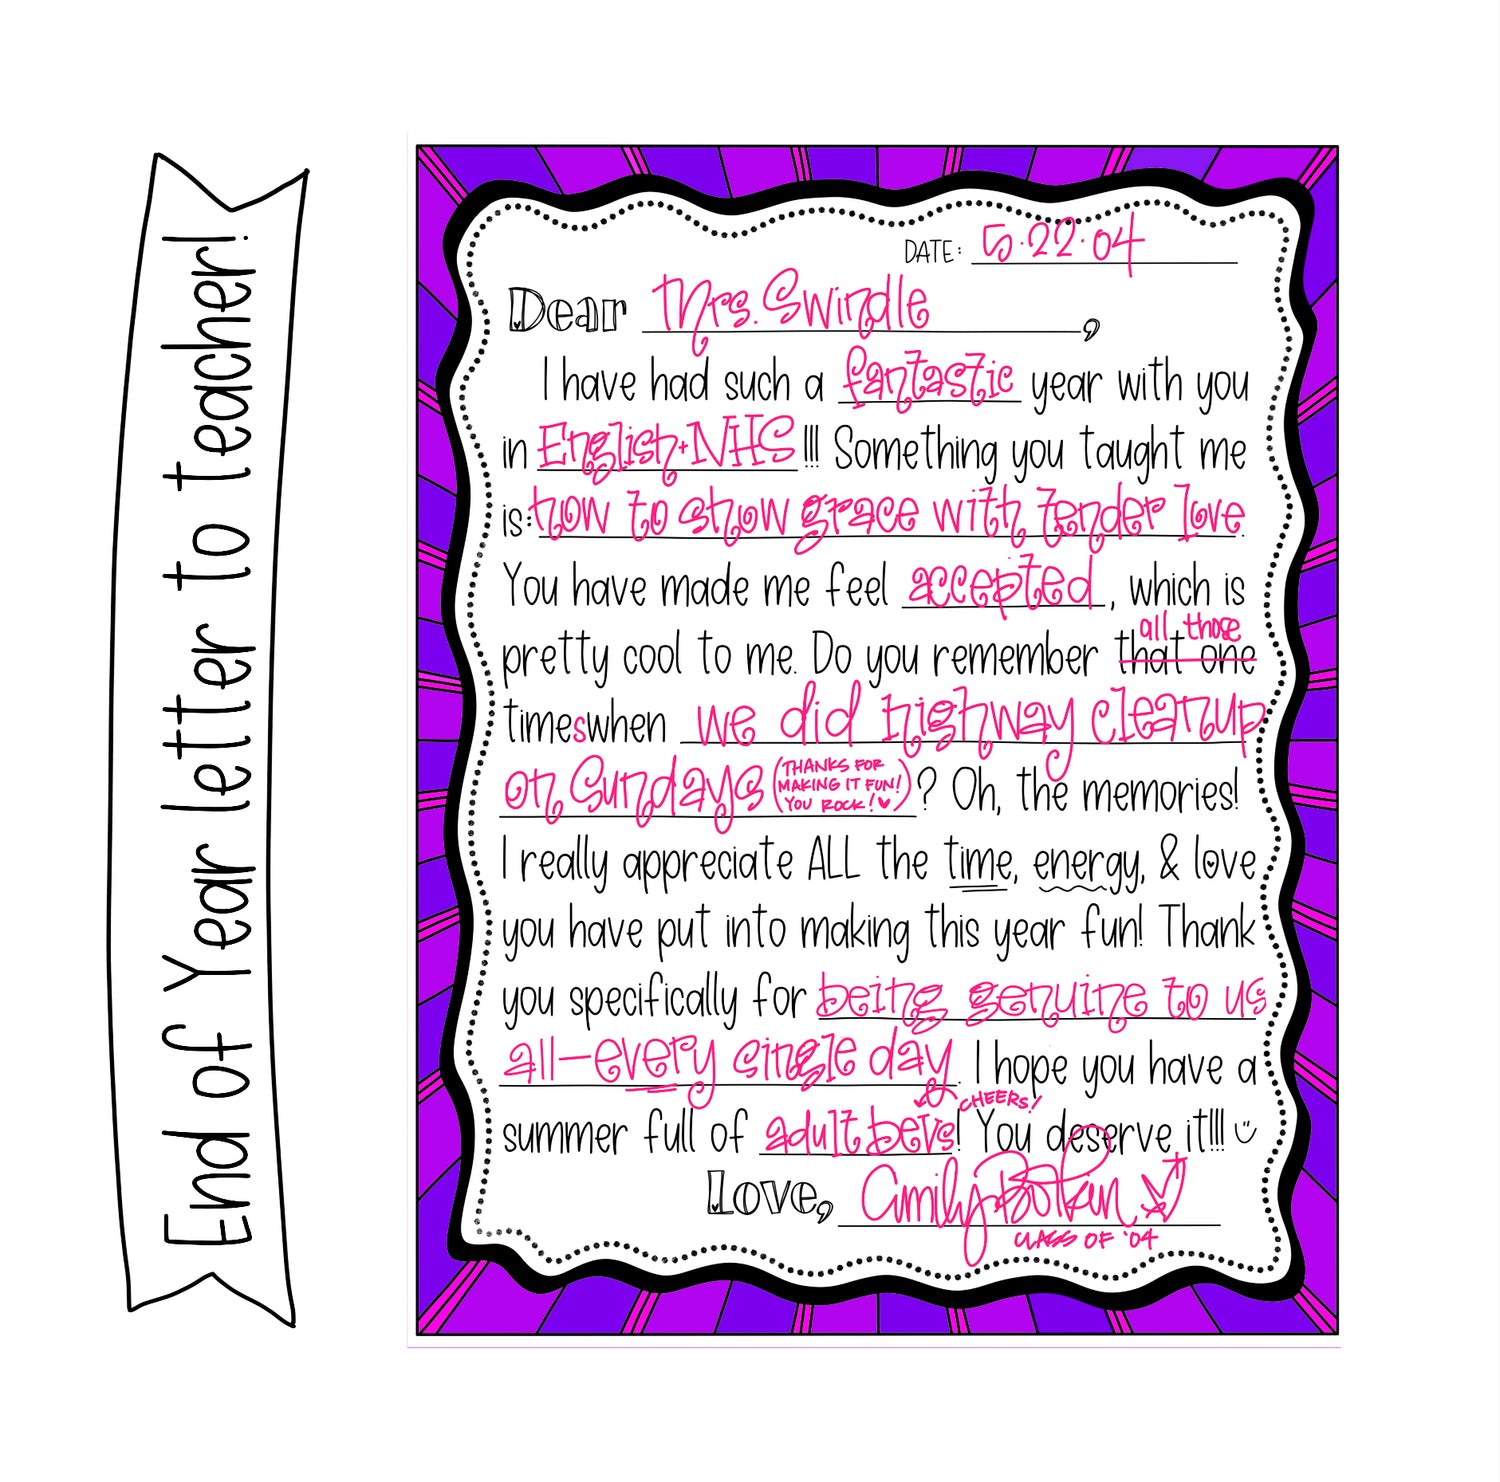 End of Year letter to teacher!
DATE: 5.22.04
Dear Mrs. Swindle,
I have had such a fantastic year with you
in English + NHS!!! Something you taught me
is: how to show grace with tender love.
You have made me feel accepted, which is
all those
pretty cool to me. Do you remember that one
times when we did highway cleanup
on Sundays (THANKS FOR
MAKING IT FUN!
YOU ROCK! ♥)? Oh, the memories!
I really appreciate ALL the time, energy, & love
you have put into making this year fun! Thank
you specifically for being genuine to us
all—every single day. I hope you have a
CHEERS!
summer full of adult bevs! You deserve it!!!
Love, Amily Botkin
CLASS OF '04